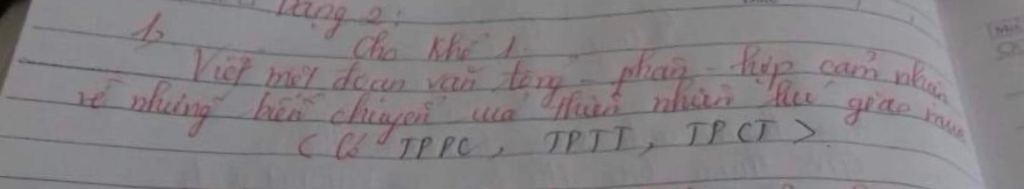 Dạng 2:
1, Cho khổ 1.
Viết một đoạn văn tổng - phân - hợp cảm nhận
về những biến chuyển của thiên nhiên lúc giao mùa
( Có TPPC, TPTT, TPCT >